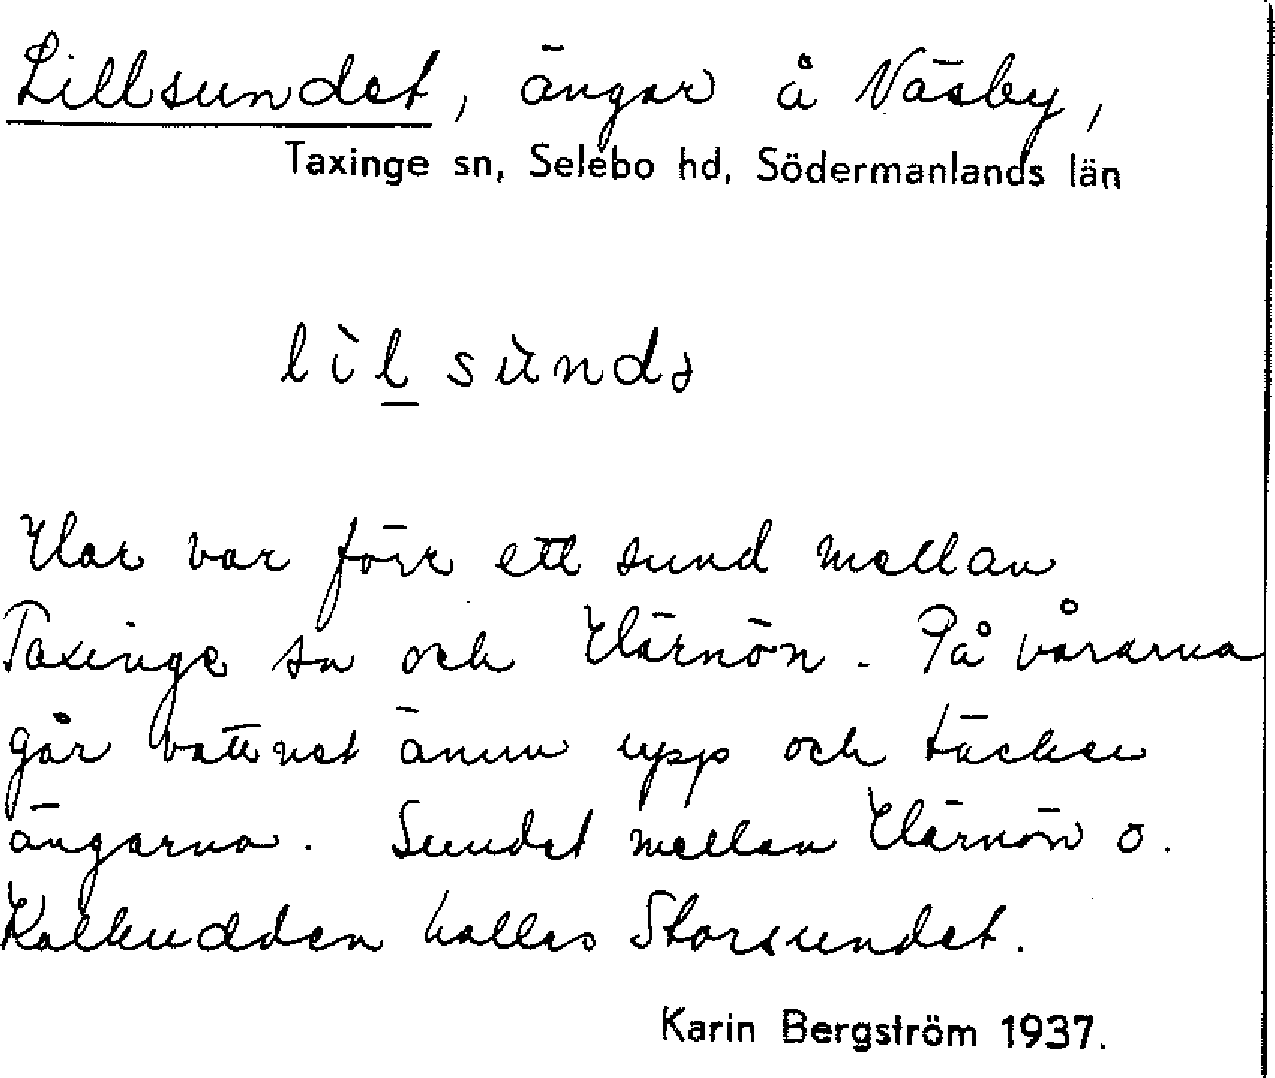 Lillsundet, ängar å Väsby,
Taxinge sn, Selebo hd, Södermanlands län
lìl sùndə
Här var förr ett sund mellan
Taxinge sn och Härnön. På vårarna
går vattnet ännu upp och täcker
ängarna. Sundet mellan Härnön o.
Kalkudden kallas Storsundet.
Karin Bergström 1937.